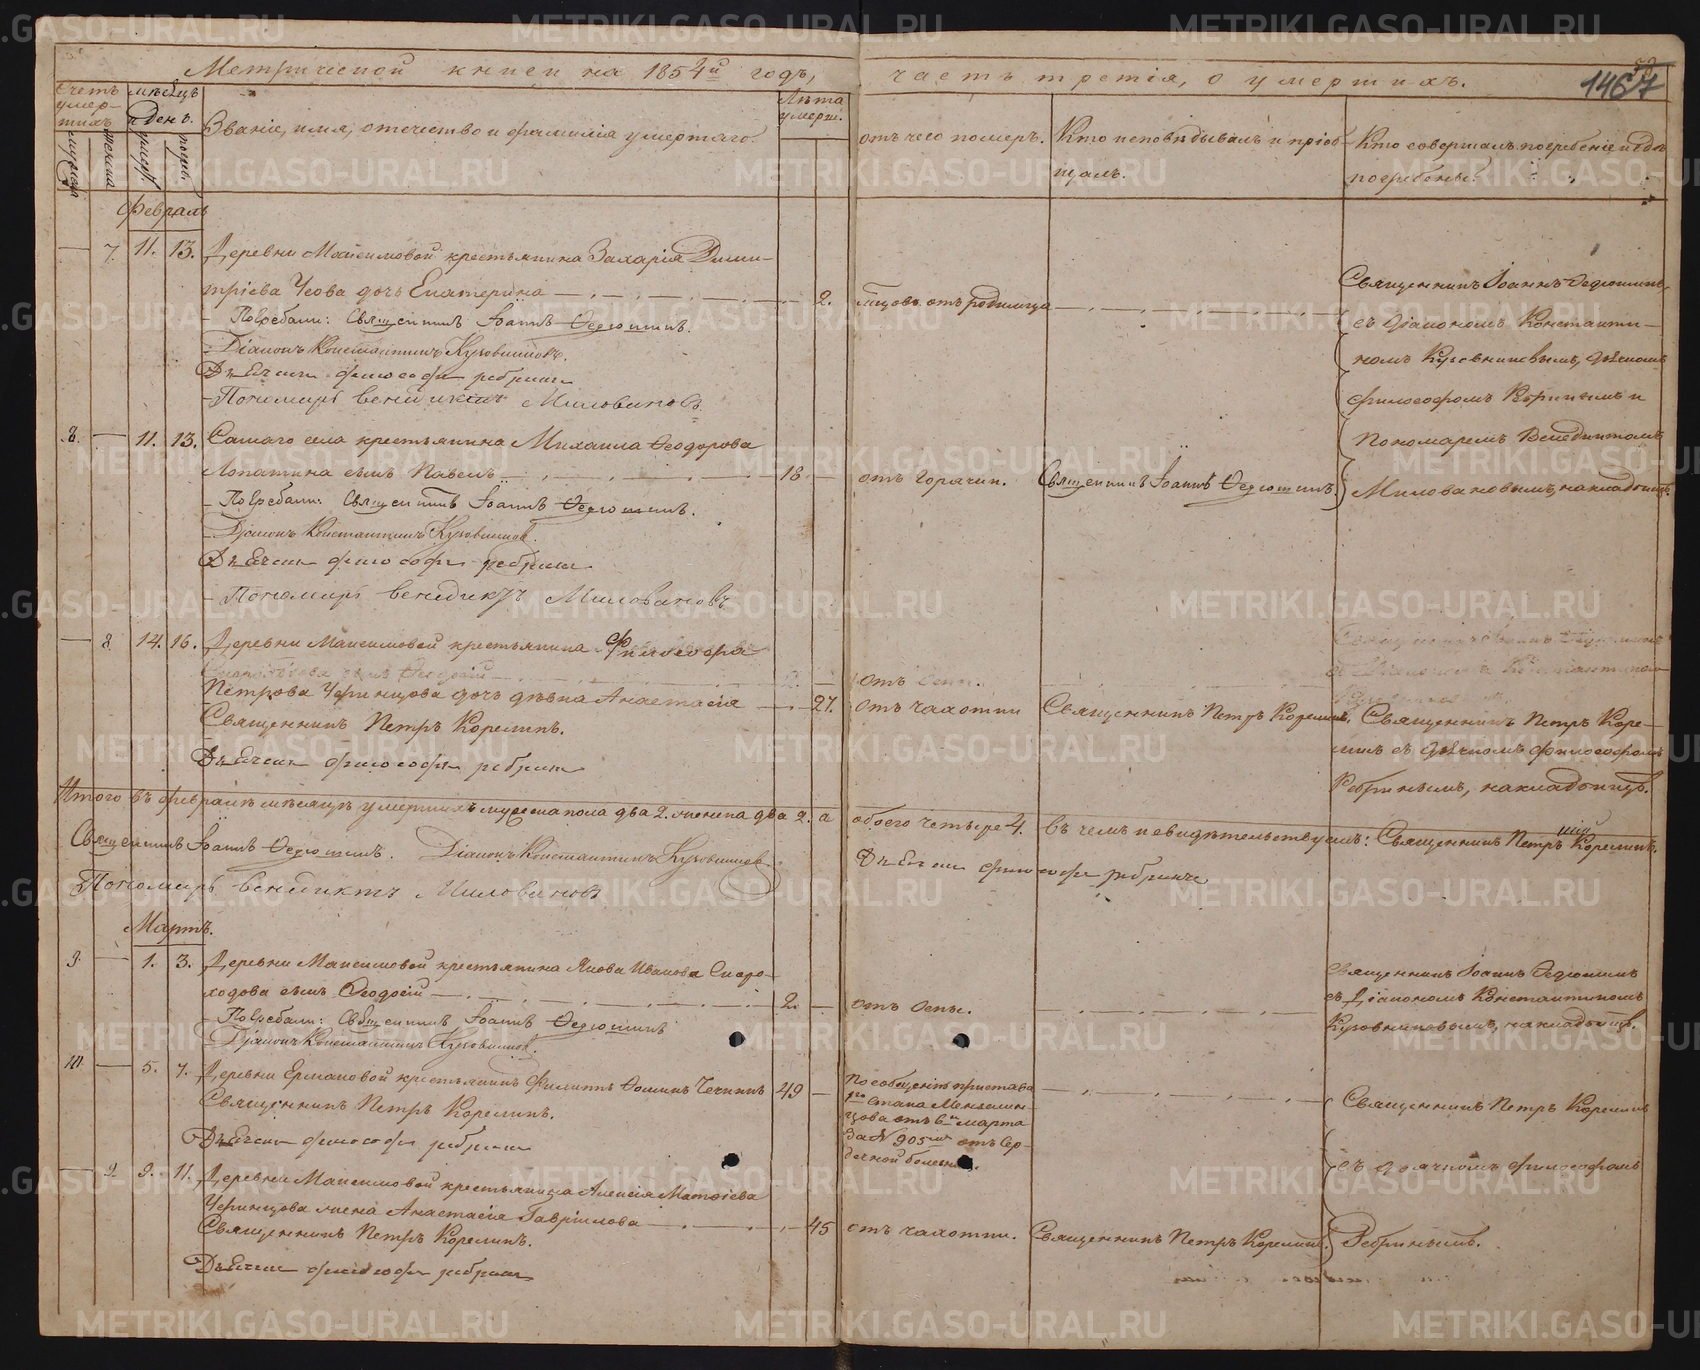 Метрической книги на 1854й годъ,
часть третія, о умершихъ.
1467
Счетъ умерших
мѣсяцъ и день.
Званіе, имя, отечество и фамилія умершаго.
Лѣта умерш.
отъ чего померъ.
Кто исповѣдывалъ и пріобщалъ.
Кто совершалъ погребеніе и гдѣ погребены?
Февраль
7. 11. 13. Деревни Максимовой крестьянина Захарія Дими-
тріева Усова дочь Екатерина 2.
отъ родимца
Погребали: Священникъ Іоаннъ Ѳедюшинъ.
Діаконъ Константинъ Кузовниковъ.
Дьячекъ философъ ребринъ
Пономарь Венедиктъ Миловановъ
Священникъ Іоаннъ Ѳедюшинъ
съ Діакономъ Константи-
номъ Кузовниковымъ, дьячкомъ
философомъ Ребринымъ и
пономаремъ Венедиктомъ
Миловановымъ, на кладбищѣ.
8. 11. 13. Самаго села крестьянина Михаила Ѳеодорова
Лопатина сынъ Павелъ 18.
отъ горячки.
Священникъ Іоаннъ Ѳедюшинъ
Погребали: Священникъ Іоаннъ Ѳедюшинъ.
Діаконъ Константинъ Кузовниковъ.
Дьячекъ философъ ребринъ
Пономарь Венедиктъ Миловановъ
8. 14. 16. Деревни Максимовой крестьянина Философа
отъ
Петрова Черинцова дочь дѣвка Анастасія 27.
отъ чахотки
Священникъ Петръ Корелинъ.
Священникъ Петръ Коре-
линъ съ дьячкомъ философомъ
Ребринымъ, на кладбищѣ.
Священникъ Петръ Корелинъ.
Дьячекъ философъ ребринъ
Итого въ февралѣ мѣсяцѣ умершихъ мужеска пола два 2. женска два 2. а
обоего четыре 4. въ чемъ и свидѣтельствуемъ: Священникъ Петръ Корелинъ.
Священникъ Іоаннъ Ѳедюшинъ. Діаконъ Константинъ Кузовниковъ
Дьячекъ философъ ребринъ
Пономарь Венедиктъ Миловановъ
Мартъ.
9. 1. 3. Деревни Максимовой крестьянина Якова Иванова Скоро-
ходова сынъ Ѳеодосій 2.
отъ оспы.
Погребали: Священникъ Іоаннъ Ѳедюшинъ
Діаконъ Константинъ Кузовниковъ.
Священникъ Іоаннъ Ѳедюшинъ
съ Діакономъ Константиномъ
Кузовниковымъ, на кладбищѣ.
10. 5. 7. Деревни Ермаковой крестьянинъ Филиппъ Ѳоминъ Чечкинъ 49
По сообщенію пристава
стана Мензелин-
цова отъ 6 марта
за № 905 отъ сер-
дечной болезни.
Священникъ Петръ Корелинъ.
Дьячекъ философъ ребринъ
Священникъ Петръ Корелинъ
съ дьячкомъ философомъ
Ребринымъ.
9. 9. 11. Деревни Максимовой крестьянина Алексія Матѳіева
Черинцова жена Анастасія Гавріилова 45
отъ чахотки.
Священникъ Петръ Корелинъ.
Священникъ Петръ Корелинъ.
Дьячекъ философъ ребринъ
METRIKI.GASO-URAL.RU